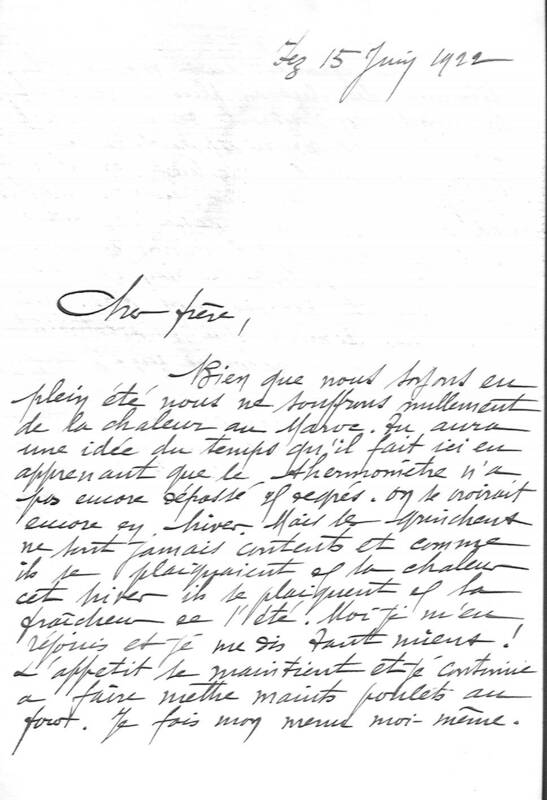 Fez 15 Juin 1922
Cher frère,
Bien que nous soyons en
plein été nous ne souffrons nullement
de la chaleur au Maroc. Tu aura
une idée du temps qu'il fait ici en
apprenant que le thermomètre n'a
pas encore dépassé degrés. On se croirait
encore en hiver. Mais les grincheux
ne sont jamais contents et comme
ils se plaignaient de la chaleur
cet hiver ils se plaignent de la
fraîcheur de l'été. Moi je m'en
réjouis et je me dis tant mieux!
L'appétit se maintient et je continue
a faire mettre maints poulets au
four. Je fais mon menu moi-même.